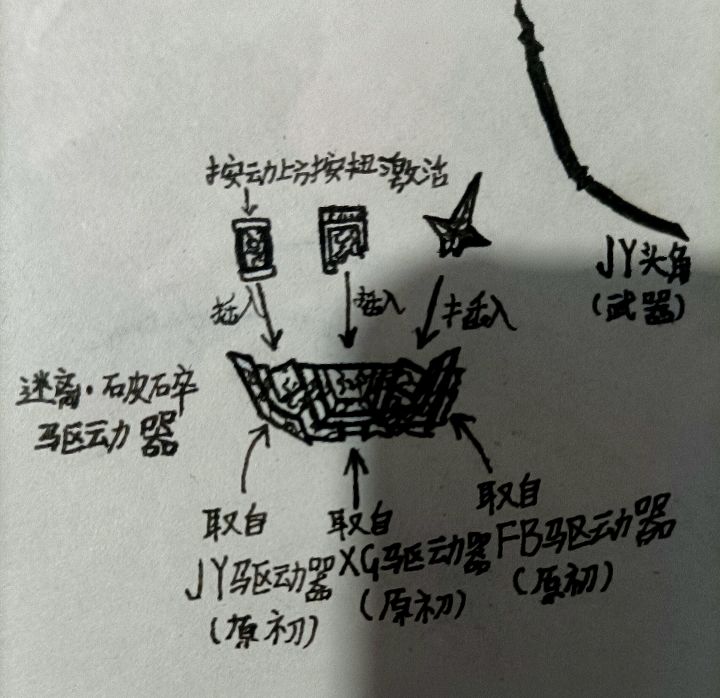 按动上方按扭激活
JY头角
(武器)
插入
插入
插入
迷离·破碎
驱动器
取自
JY驱动器
(原初)
取自
XG驱动器
(原初)
取自
FB驱动器
(原初)